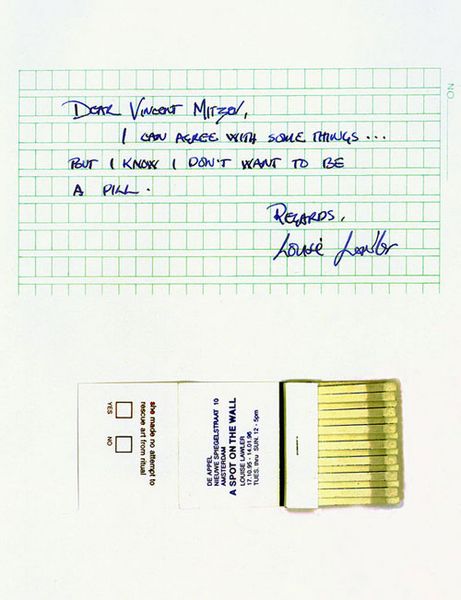 NO
DEAR VINCENT
I CAN AGREE WITH SOME THINGS ...
BUT I KNOW I DON'T WANT TO BE
A PILL.
REGARDS,
Louise Lawler
she made no attempt to
rescue art from ritual
YES NO
DE APPEL
NIEUWE SPIEGELSTRAAT 10
AMSTERDAM
A SPOT ON THE WALL
LOUISE LAWLER
17.10.95 - 14.01.96
TUES. thru SUN. 12 - 5pm